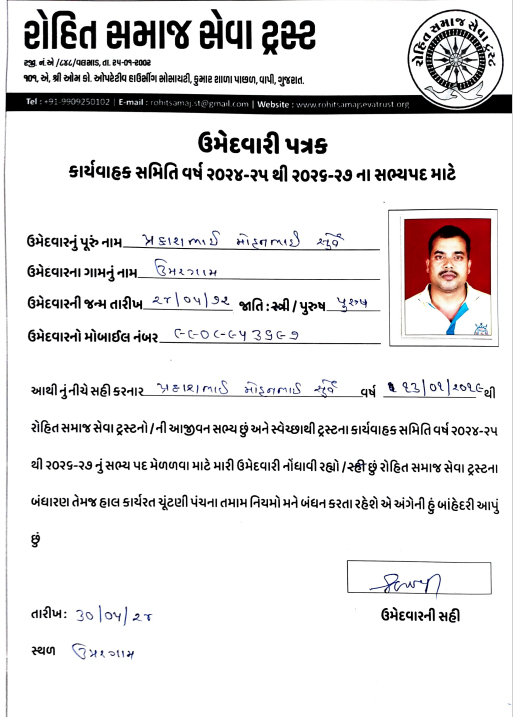 રોહિત સમાજ સેવા ટ્રસ્ટ
રજી. નં. એ /૮૪૮/વલસાડ, તા. ૨૫-૦૧-૨૦૦૨
૧૦૧, એ, શ્રી ઓમ કો. ઓપરેટીવ હાઉસિંગ સોસાયટી, કુમાર શાળા પાછળ, વાપી, ગુજરાત.
રોહિત સમાજ સેવા ટ્રસ્ટ
Tel : +91-9909250102 | E-mail : rohitsamaj.st@gmail.com | Website : www.rohitsamajsevatrust.org
ઉમેદવારી પત્રક
કાર્યવાહક સમિતિ વર્ષ ૨૦૨૪-૨૫ થી ૨૦૨૬-૨૭ ના સભ્યપદ માટે
ઉમેદવારનું પૂરું નામ પ્રકાશભાઈ મોહનભાઈ સુર્વે
ઉમેદવારના ગામનું નામ ઉમરગામ
ઉમેદવારની જન્મ તારીખ ૨૪/૦૫/૭૨ જાતિ : સ્ત્રી / પુરુષ પુરુષ
ઉમેદવારનો મોબાઈલ નંબર ૯૯૦૯૯૫૩૬૯૭
આથી નું નીચે સહી કરનાર પ્રકાશભાઈ મોહનભાઈ સુર્વે વર્ષ ૧૩/૦૧/૨૦૧૯ થી
રોહિત સમાજ સેવા ટ્રસ્ટનો / ની આજીવન સભ્ય છું અને સ્વેચ્છાથી ટ્રસ્ટના કાર્યવાહક સમિતિ વર્ષ ૨૦૨૪-૨૫
થી ૨૦૨૬-૨૭ નું સભ્ય પદ મેળવવા માટે મારી ઉમેદવારી નોંધાવી રહ્યો / રહી છું રોહિત સમાજ સેવા ટ્રસ્ટના
બંધારણ તેમજ હાલ કાર્યરત ચૂંટણી પંચના તમામ નિયમો મને બંધન કરતા રહેશે એ અંગેની હું બાંહેદરી આપું
છું
તારીખ: ૩૦/૦૫/૨૪
ઉમેદવારની સહી
સ્થળ ઉમરગામ